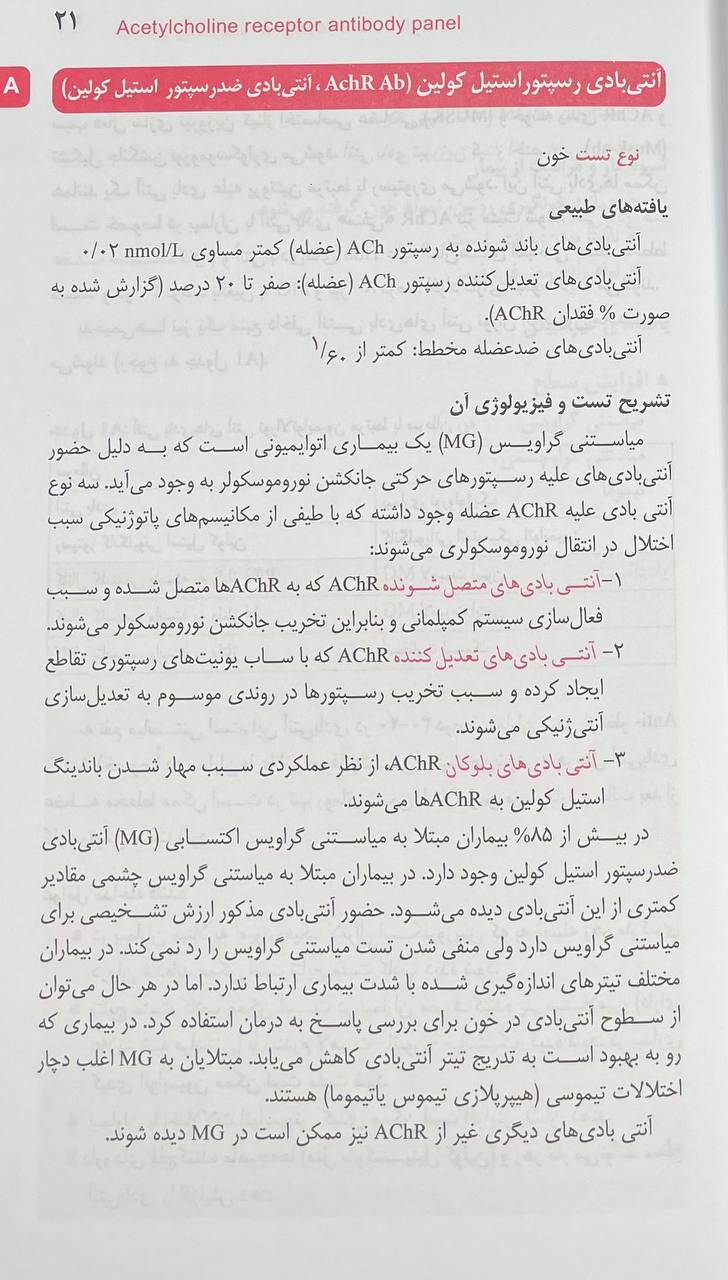 ۲۱ Acetylcholine receptor antibody panel
A
آنتی‌بادی رسپتور استیل کولین (AchR Ab ، آنتی‌بادی ضدرسپتور استیل کولین)
نوع تست خون
یافته‌های طبیعی
آنتی‌بادی‌های باند شونده به رسپتور ACh (عضله) کمتر مساوی ۰/۰۲ nmol/L
آنتی‌بادی‌های تعدیل‌کننده رسپتور ACh (عضله): صفر تا ۲۰ درصد (گزارش شده به
صورت % فقدان AChR).
آنتی‌بادی‌های ضدعضله مخطط: کمتر از ۱/۶۰
تشریح تست و فیزیولوژی آن
میاستنی گراویس (MG) یک بیماری اتوایمیونی است که به دلیل حضور
آنتی‌بادی‌های علیه رسپتورهای حرکتی جانکشن نوروموسکولر به وجود می‌آید. سه نوع
آنتی بادی علیه AChR عضله وجود داشته که با طیفی از مکانیسم‌های پاتوژنیکی سبب
اختلال در انتقال نوروموسکولری می‌شوند:
۱-آنتی بادی‌های متصل شونده AChR که به AChRها متصل شده و سبب
فعال‌سازی سیستم کمپلمانی و بنابراین تخریب جانکشن نوروموسکولر می‌شوند.
۲- آنتی بادی‌های تعدیل کننده AChR که با ساب یونیت‌های رسپتوری تقاطع
ایجاد کرده و سبب تخریب رسپتورها در روندی موسوم به تعدیل‌سازی
آنتی‌ژنیکی می‌شوند.
۳- آنتی بادی‌های بلوکان AChR، از نظر عملکردی سبب مهار شدن باندینگ
استیل کولین به AChRها می‌شوند.
در بیش از ۸۵% بیماران مبتلا به میاستنی گراویس اکتسابی (MG) آنتی‌بادی
ضدرسپتور استیل کولین وجود دارد. در بیماران مبتلا به میاستنی گراویس چشمی مقادیر
کمتری از این آنتی‌بادی دیده می‌شود. حضور آنتی‌بادی مذکور ارزش تشخیصی برای
میاستنی گراویس دارد ولی منفی شدن تست میاستنی گراویس را رد نمی‌کند. در بیماران
مختلف تیترهای اندازه‌گیری شده با شدت بیماری ارتباط ندارد. اما در هر حال می‌توان
از سطوح آنتی‌بادی در خون برای بررسی پاسخ به درمان استفاده کرد. در بیماری که
رو به بهبود است به تدریج تیتر آنتی‌بادی کاهش می‌یابد. مبتلایان به MG اغلب دچار
اختلالات تیموسی (هیپرپلازی تیموس یاتیموما) هستند.
آنتی بادی‌های دیگری غیر از AChR نیز ممکن است در MG دیده شوند.